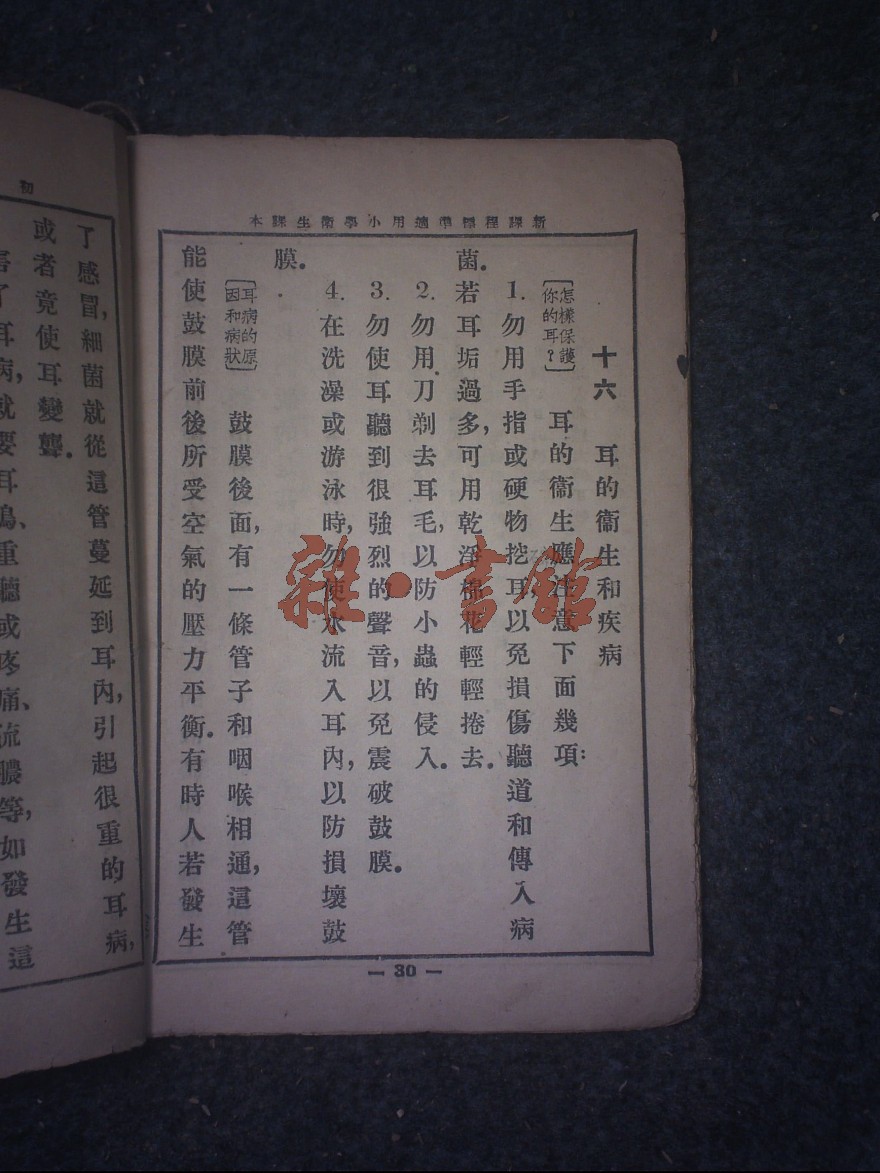 新課程標準適用小學衞生課本
十六 耳的衞生和疾病
〔怎樣保護你的耳?〕 耳的衞生應注意下面幾項:
1. 勿用手指或硬物挖耳以免損傷聽道和傳入病
菌.若耳垢過多,可用乾淨棉花輕輕捲去.
2. 勿用刀剃去耳毛,以防小蟲的侵入.
3. 勿使耳聽到很強烈的聲音,以免震破鼓膜.
4. 在洗澡或游泳時,勿使水流入耳內,以防損壞鼓
膜.
〔耳病的原因和病狀〕 鼓膜後面,有一條管子和咽喉相通,這管
能使鼓膜前後所受空氣的壓力平衡.有時人若發生
— 30 —
雜·書館
初
了感冒,細菌就從這管蔓延到耳內,引起很重的耳病,
或者竟使耳變聾.
害了耳病,就要耳鳴、重聽或疼痛、流膿等,如發生這